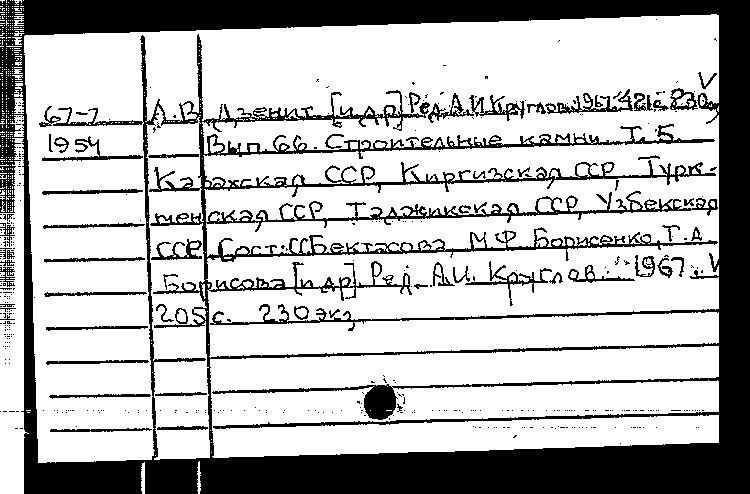 67-7 А.В. Дзенит [и др.] Ред. А.И. Круглов. 1967. 421с. 230экз
1954 Вып. 66. Строительные камни. Т. 5.
Казахская ССР, Киргизская ССР, Турк-
менская ССР, Таджикская ССР, Узбекская
ССР. Сост: С.С. Бектасова, М.Ф. Борисенко, Г.А.
Борисова [и др]. Ред. А.И. Круглов. 1967. V
205 с. 230 экз.